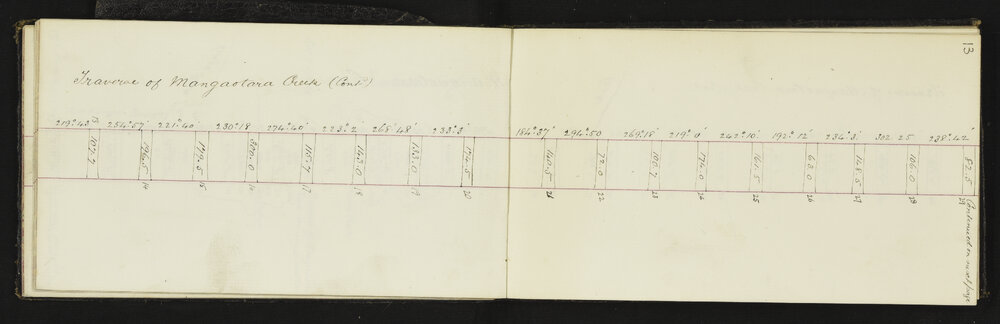 13
Traverse of Mangaotara Creek (Cont^d)
219°43' 254°57' 221°40' 230°18 274°40' 223°2' 268°48' 233°3' 184°37' 294°50 269°18' 219°0' 242°10' 192°12' 234°3' 302 25 238°42'
107.7 196.5 179.5 300.0 115.7 162.0 133.0 174.5 160.5 79.0 100.7 174.0 161.5 68.0 148.5 106.0 82.5
13 14 15 16 17 18 19 20 21 22 23 24 25 26 27 28 29
Continued on next page